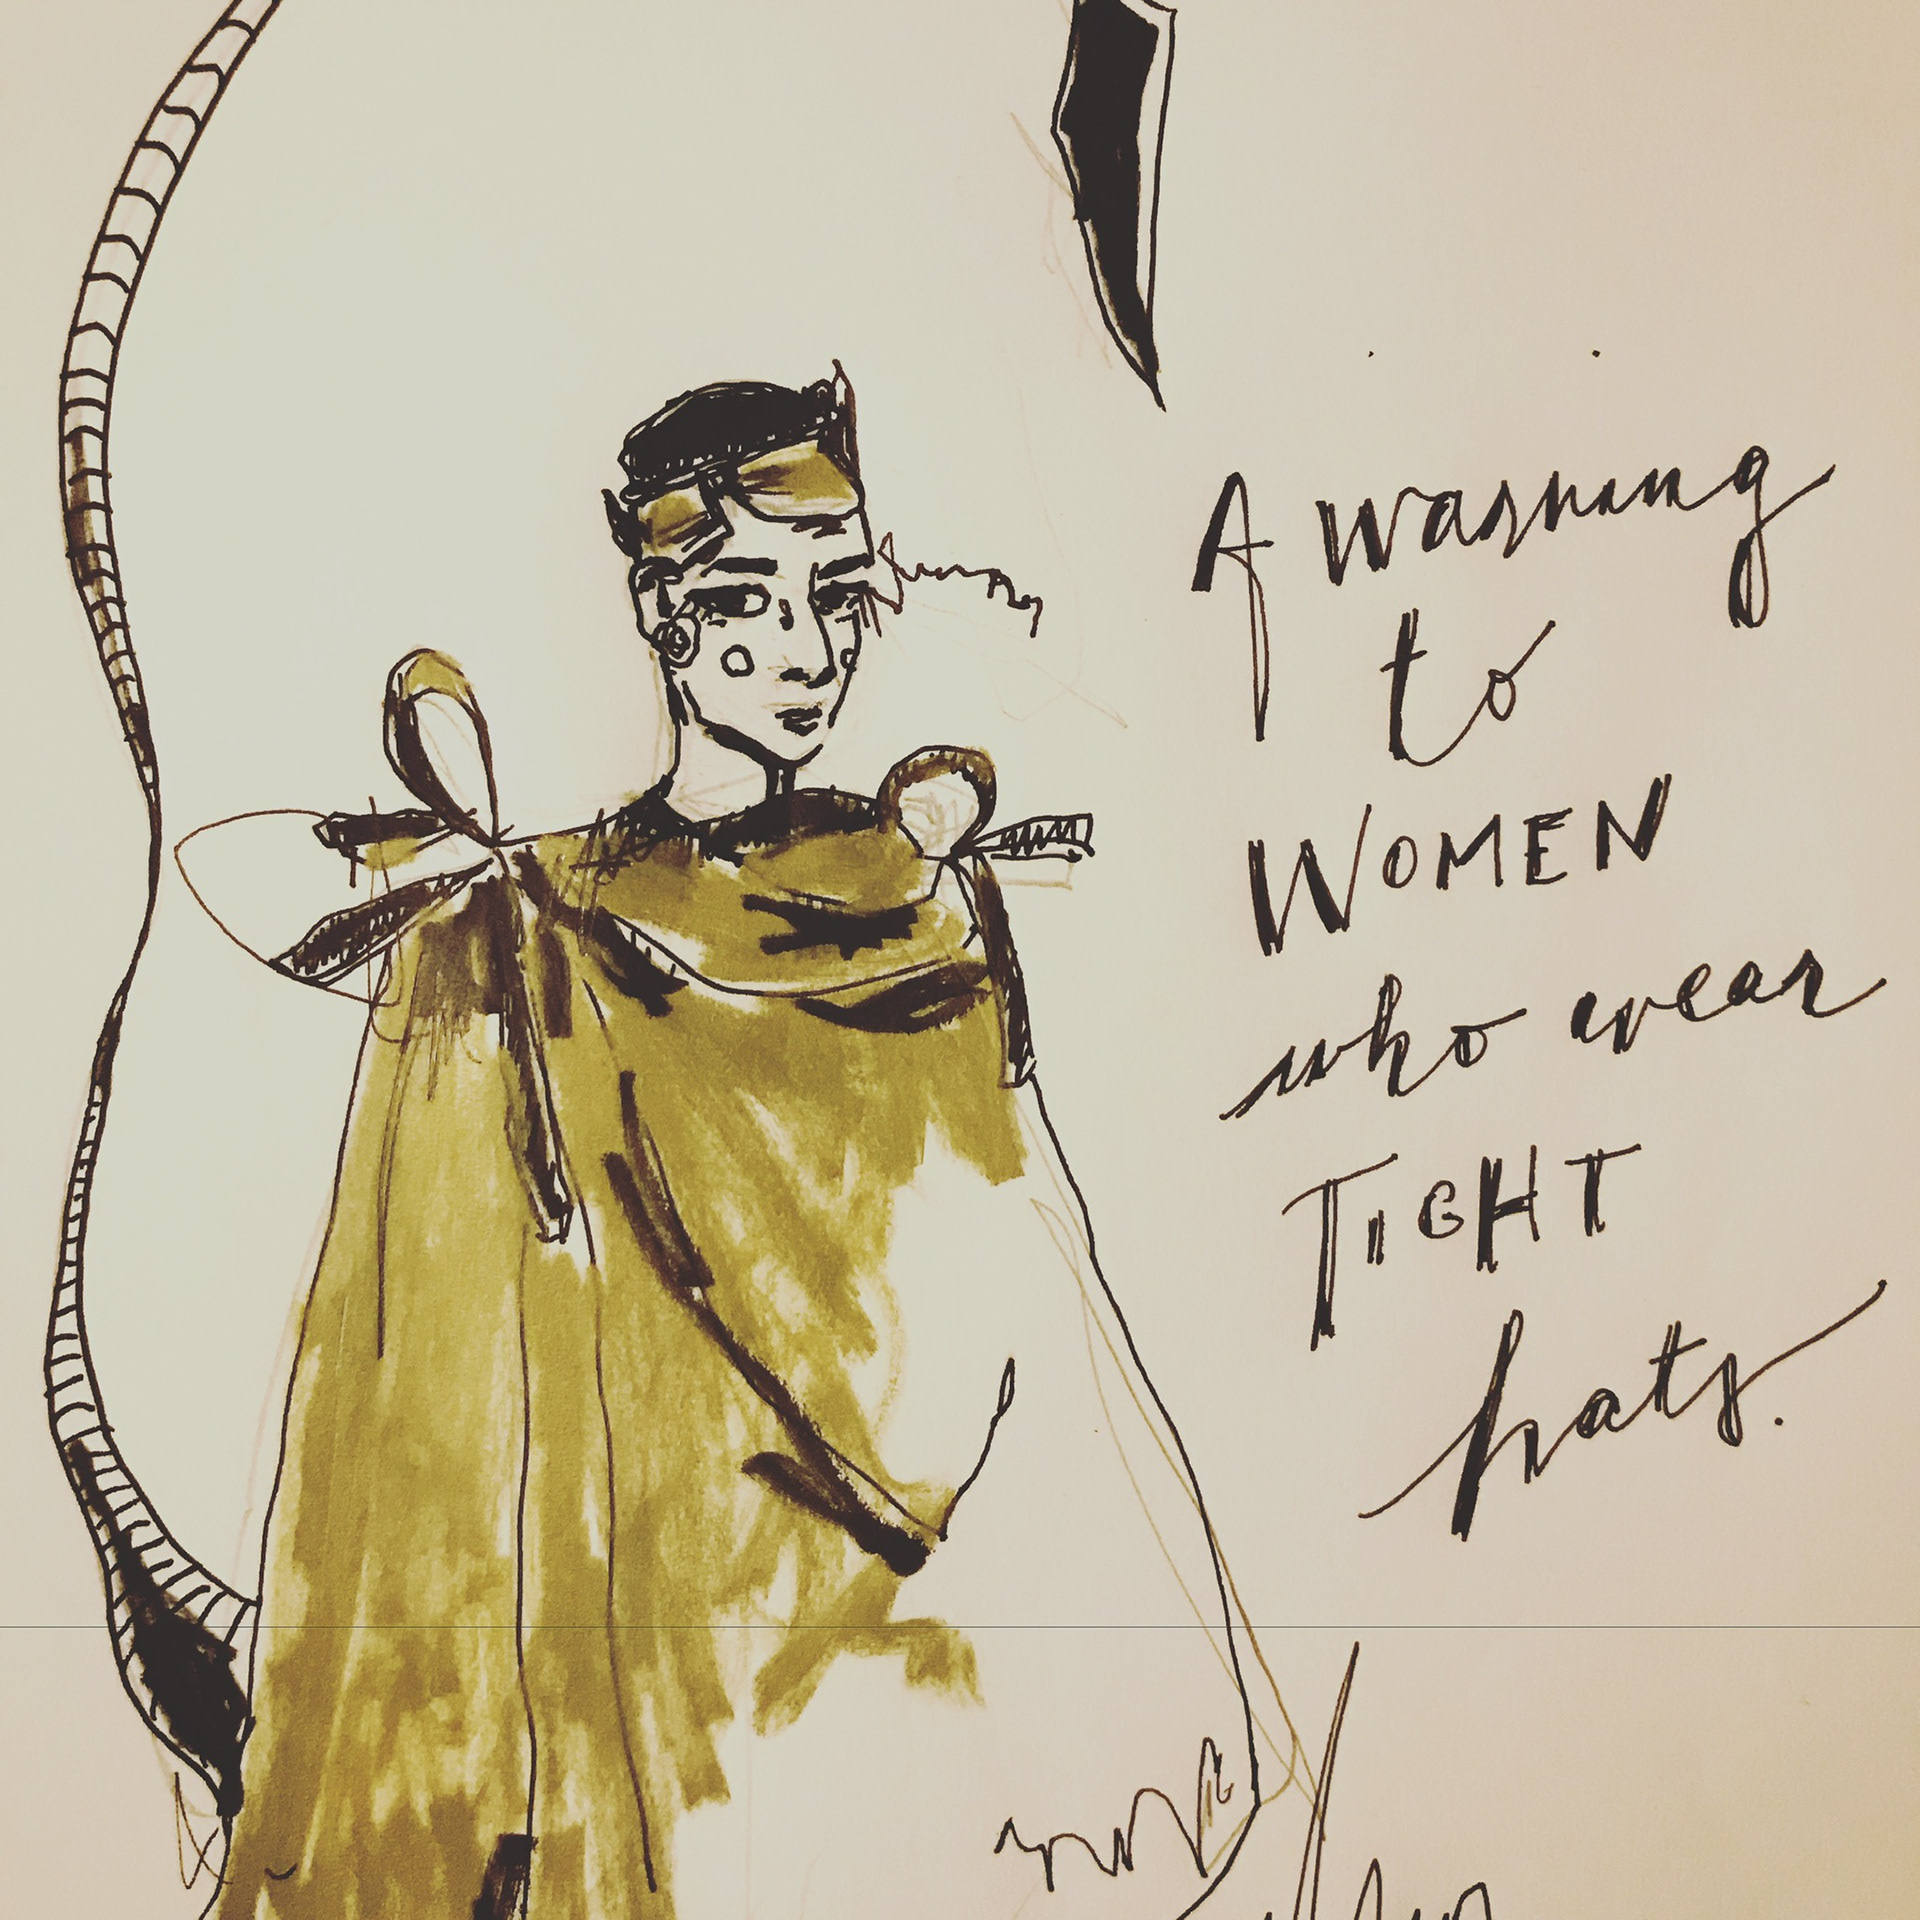 A warning
to
WOMEN
who wear
TIGHT
hats.